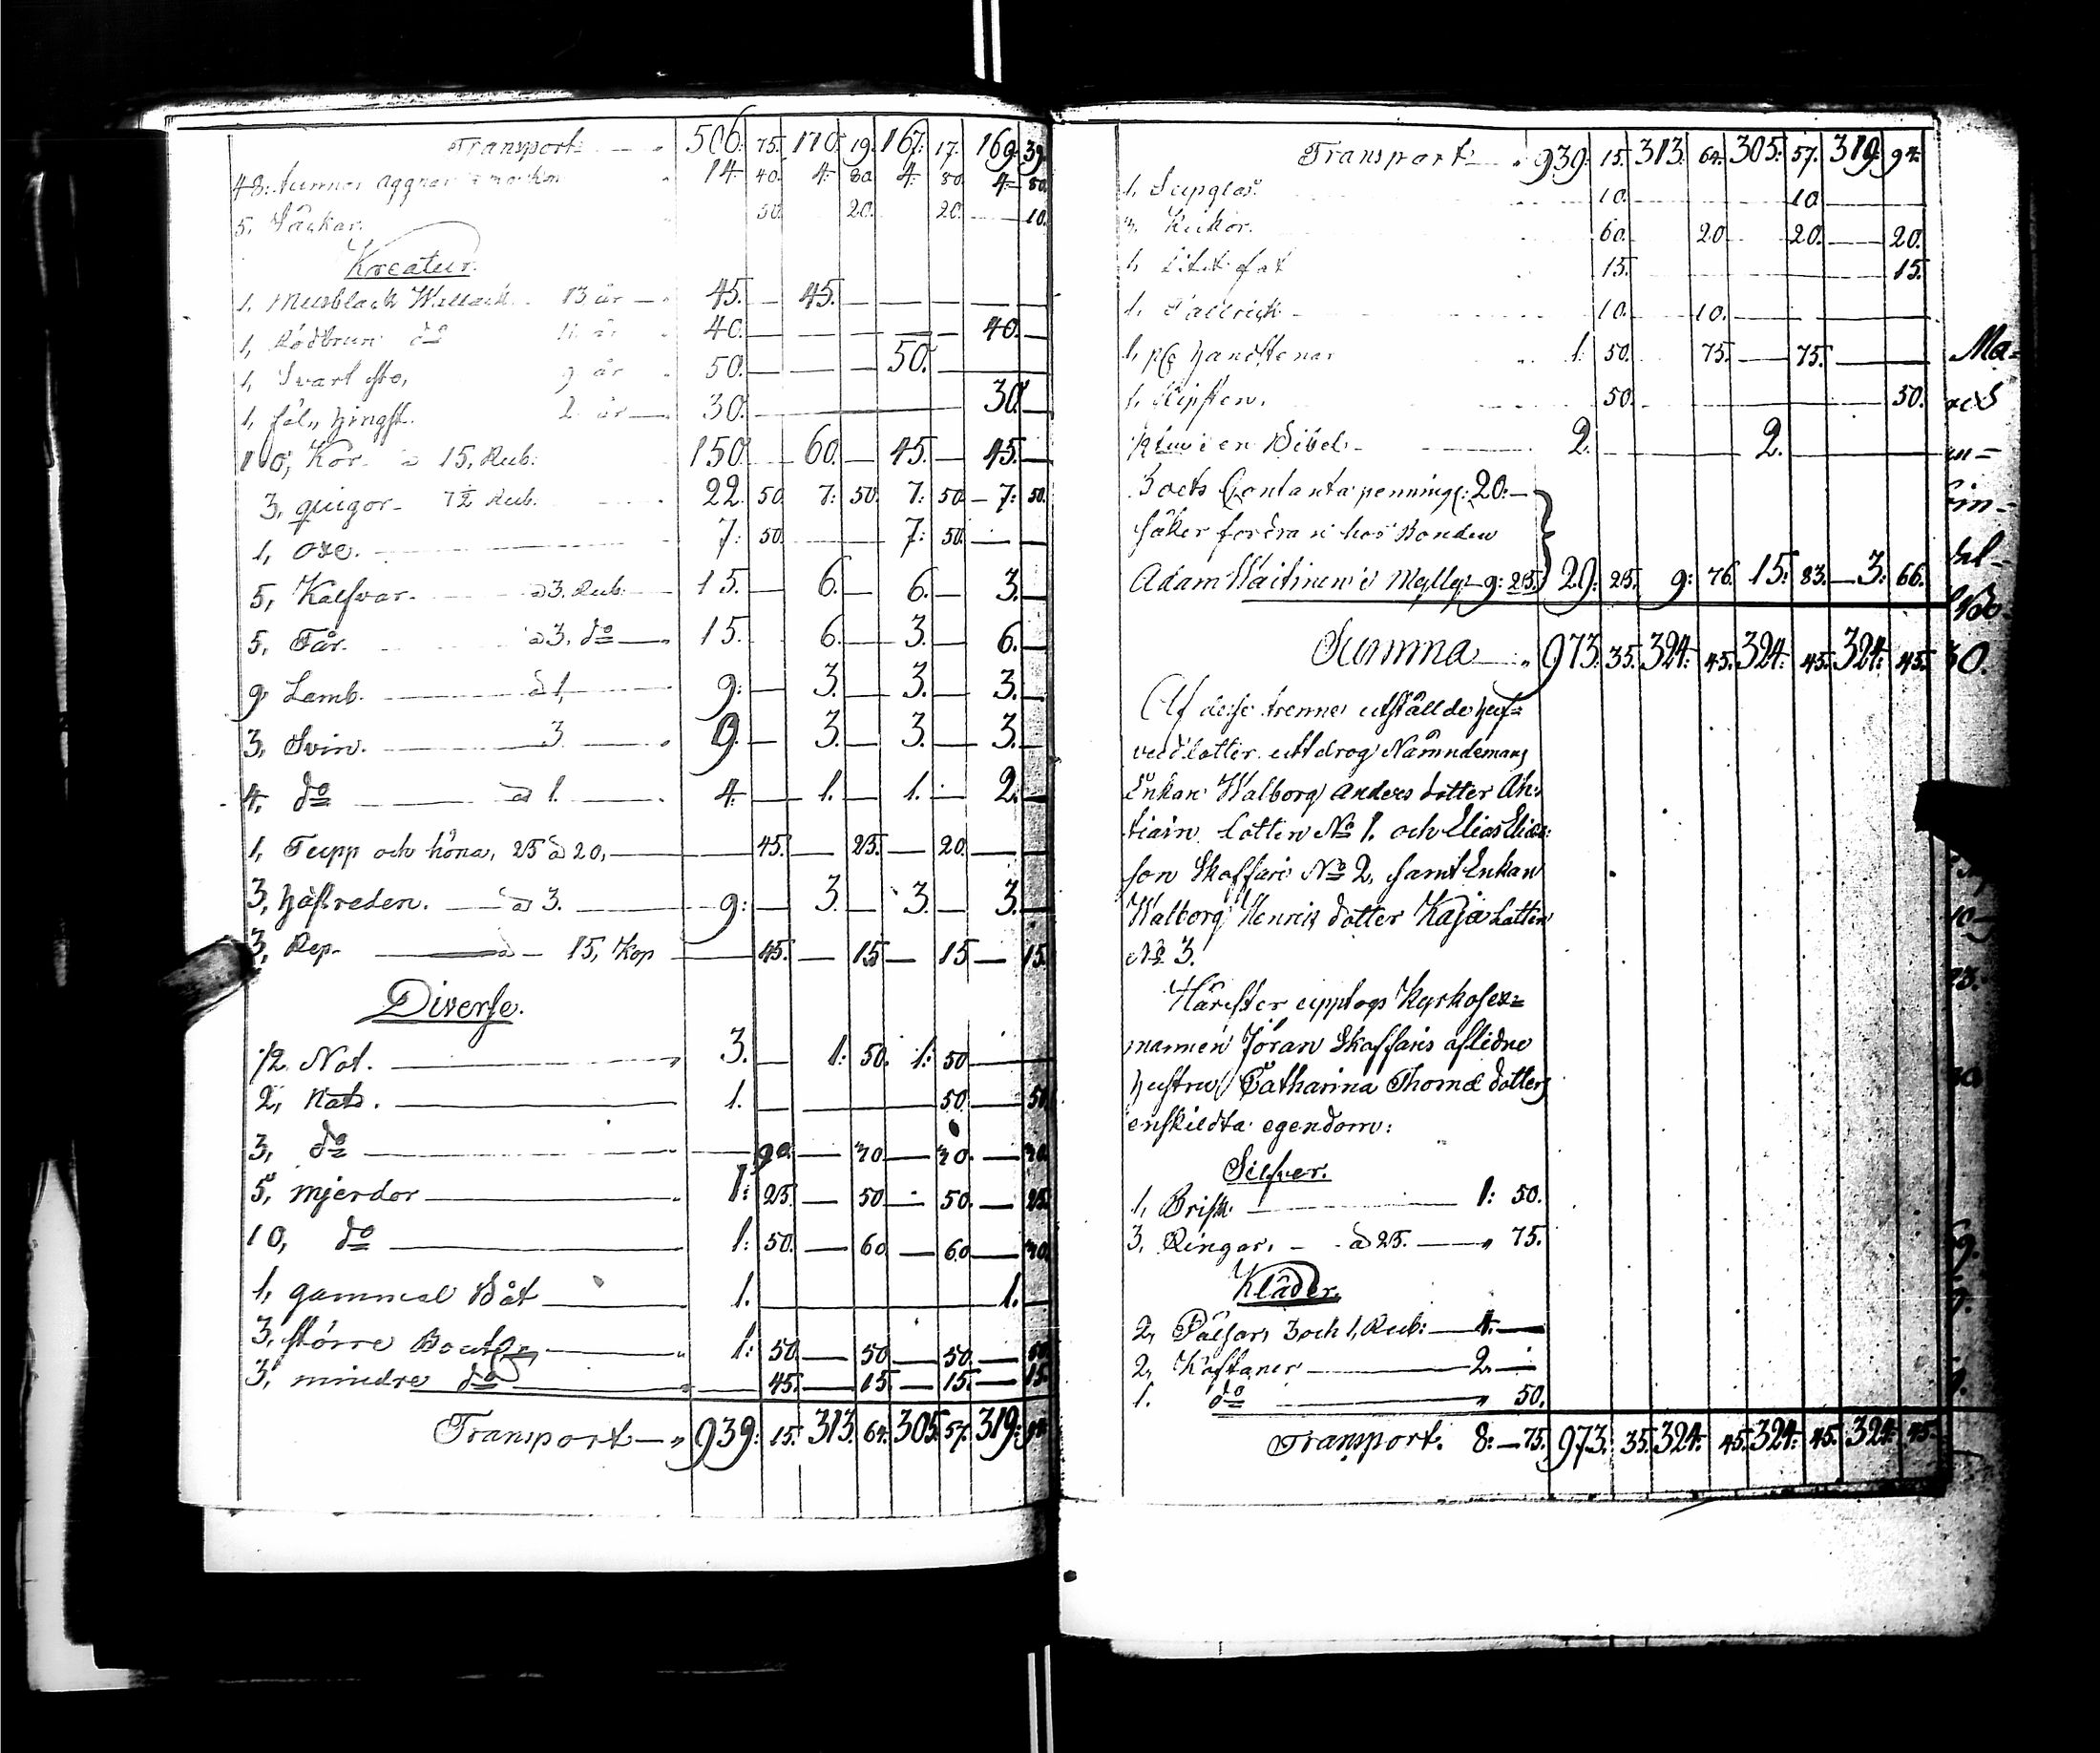 Transport: 506. 75. 170. 19. 167. 17. 169. 39.
48: tunnor aggnar 14. 40. 4. 80. 4. 80. 4. 80.
5, Säckar. 50. 20. 20. 10.
Kreatur.
1, Musblack Wallack. 13 år 45. 45.
1, Rödbrun do 11 år 40. 40.
1, Svart sto, 9 år 50. 50.
1, föl,, hingst. 2 år 30. 30.
10, Kor a 15, Rub: 150. 60. 45. 45.
3, quigor 7½ Rub. 22. 50. 7: 50. 7: 50. 7: 50.
1, oxe. 7: 50. 7: 50.
5, Kalfvar. a 3. Rub. 15. 6. 6. 3.
5, Får. a 3, do 15. 6. 3. 6.
9 Lamb. a 1, 9: 3. 3. 3.
3, Svin. 3 9. 3. 3. 3.
4, do a 1. 4. 1. 1. 2.
1, Tupp och höna, 25 a 20, 45. 25. 20.
3, hästreden. a 3. 9: 3. 3. 3.
3, Rep. a 15, Kop 45. 15 15 15.
Diverse.
½ Not. 3. 1: 50. 1: 50
2, Nät. 1. 50. 50.
3, do 90. 30. 30. 30.
5, mjerdor 1: 25. 50 50. 25.
10, do 1: 50. 60 60. 30.
1, gammal Båt 1. 1.
3, större 1: 50 50 50. 50.
3, mindre do 45. 15. 15. 15.
Transport 939: 15. 313. 64. 305. 57. 319: 94.
Transport: 939. 15. 313. 64. 305. 57. 319. 94.
1, Supglas. 10. 10
3, Krukor. 60. 20. 20. 20.
1, fat 15. 15.
1, Tallrick 10. 10.
1, pr handstenar 1: 50. 75. 75.
1, Slipsten. 50. 50.
½ en Bibel. 2. 2.
och Contanta penning: 20:
säker fordran hos Bonden
Adam 9: 25. 29: 25. 9: 76. 15: 83. 3: 66.
Summa 973. 35. 324: 45. 324: 45. 324: 45.
Af desse trenne utställde huf=
vudlotter utdrog Nämndemans
Enkan Walborg Anders dotter Ah=
tiain lotten No 1. och Elias Elias=
son Skaffari No 2, samt Enkan
Walborg Henrics dotter Kaja Lotten
No 3.
Härefter upptogs Kyrkosex=
mannen Jöran Skaffaris aflidne
hustru Catharina Thomæ dotters
enskildta egendom:
Silfver.
1, Brisk 1: 50.
3, Ringar. a 25. 75.
Kläder.
2, Pälsar, 3 och 1, Rub: 4.
2, Kaftaner 2
1. do 50.
Transport. 8: 75. 973. 35. 324: 45. 324: 45. 324: 45.